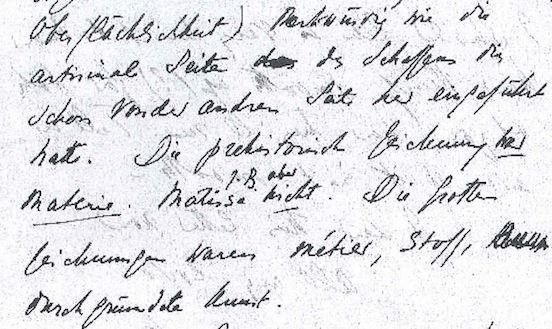 Oberflächlichkeit) Merkwürdig wie die
Seite des Schaffens die
schon von der andren Seite her eingeführt
hatte. Die prehistorisch Zeichnung hat
z.B. aber
Materie. Matisse nicht. Die Grotten
Zeichnungen waren métier, Stoff,
durchgründete Kunst.